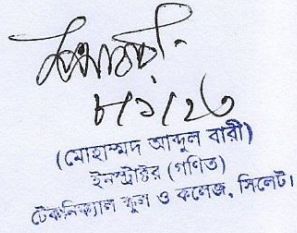 ৮/১/২৩
(মোহাম্মদ আব্দুল বারী)
ইনস্ট্রাক্টর (গণিত)
টেকনিক্যাল স্কুল ও কলেজ, সিলেট।